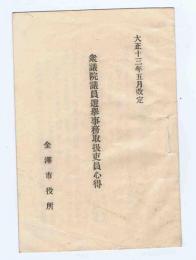 大正十三年五月改定
衆議院議員選擧事務取扱吏員心得
金澤市役所